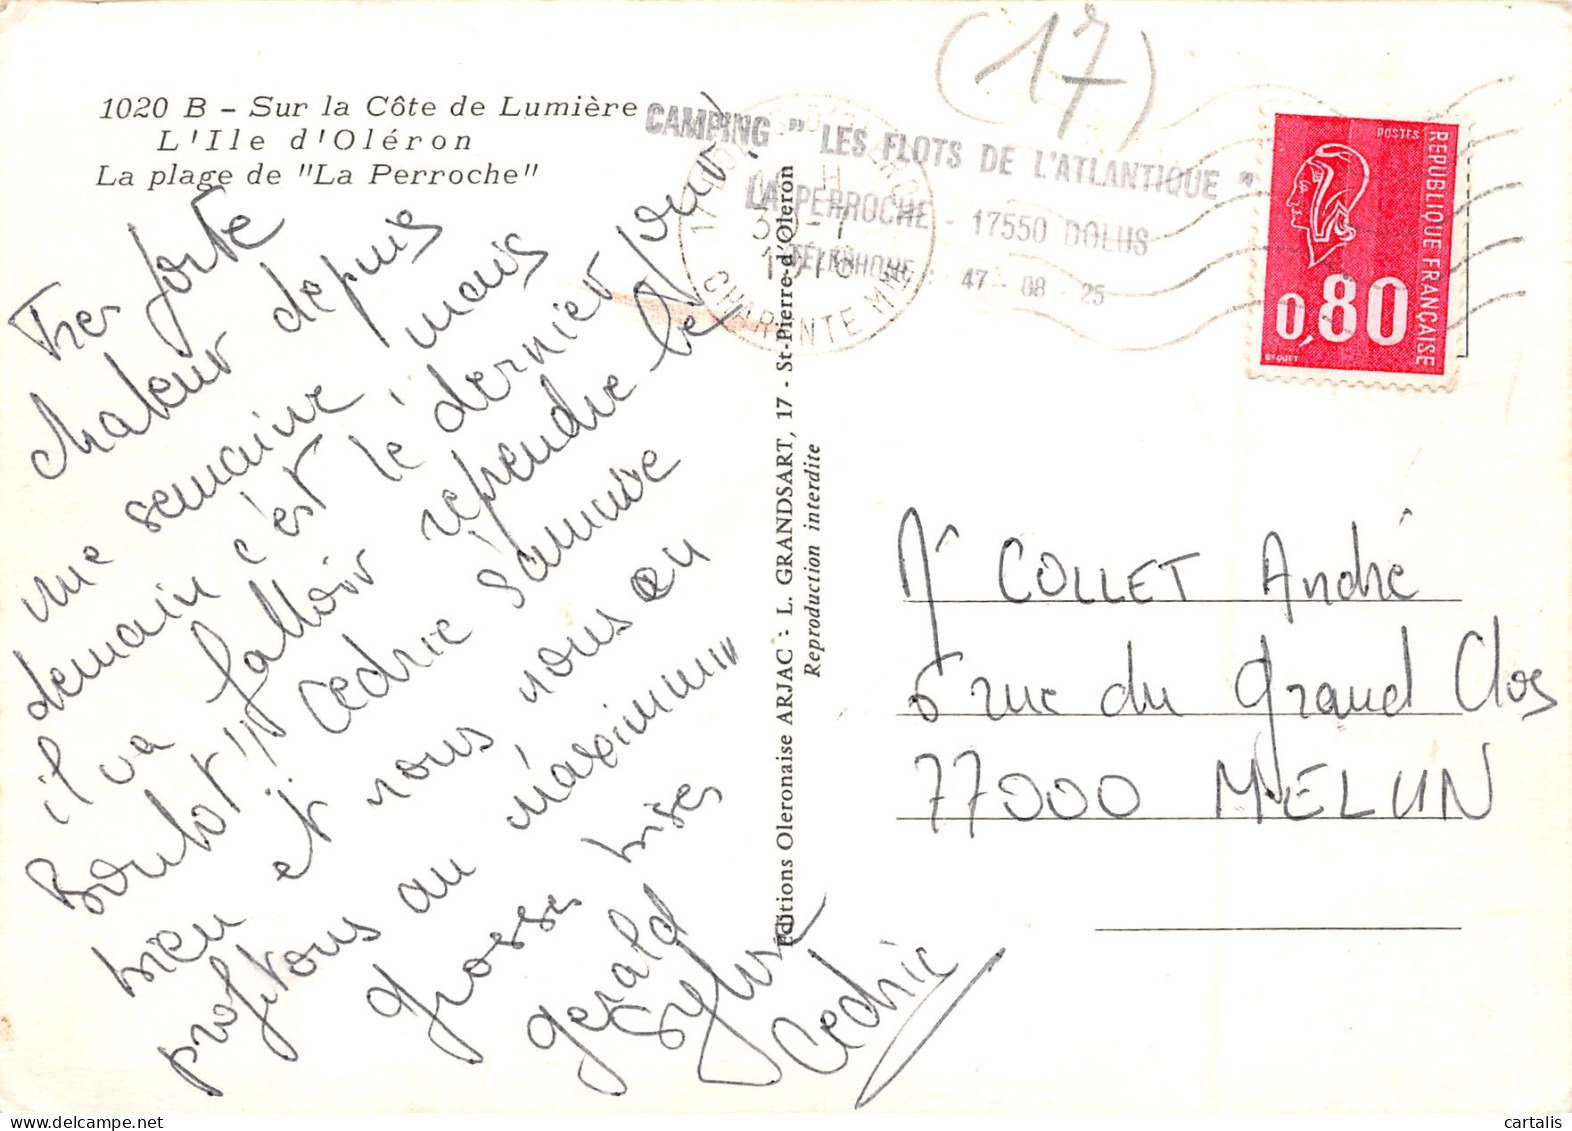 (17)
1020 B - Sur la Côte de Lumière
L'Ile d'Oléron
La plage de "La Perroche"
CAMPING " LES FLOTS DE L'ATLANTIQUE "
LA PERROCHE - 17550 DOLUS
TÉLÉPHONE : 47 - 08 - 25
CHARENTE MME
POSTES
REPUBLIQUE FRANÇAISE
0,80
BEQUET
Tres forte
chaleur depuis
une semaine, mais
demain c'est le dernier jour!
il va falloir reprendre le
Boulot!! Cedric s'amuse
bien et nous nous en
profitons au maximum
grosses bises
Gerald
Sylvie
Cedric
Editions Oleronaise ARJAC : L. GRANDSART, 17 - St-Pierre-d'Oleron
Reproduction interdite
Mr COLLET André
6 rue du Grand Clos
77000 MELUN
cartalis